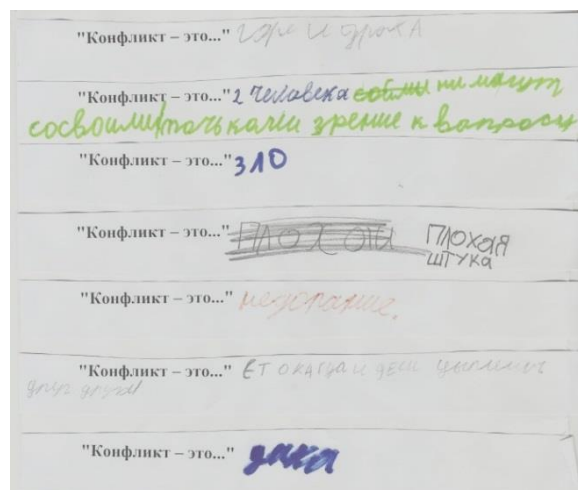 "Конфликт – это..." горе и драка
"Конфликт – это..." 2 человека не могут
со своими точьками зрение к вапросу
"Конфликт – это..." ЗЛО
"Конфликт – это..." ПЛОХОЙ ПЛОХАЯ
ШТУКА
"Конфликт – это..."
"Конфликт – это..." ЕТО КАГДА
друг друга
"Конфликт – это..." драка